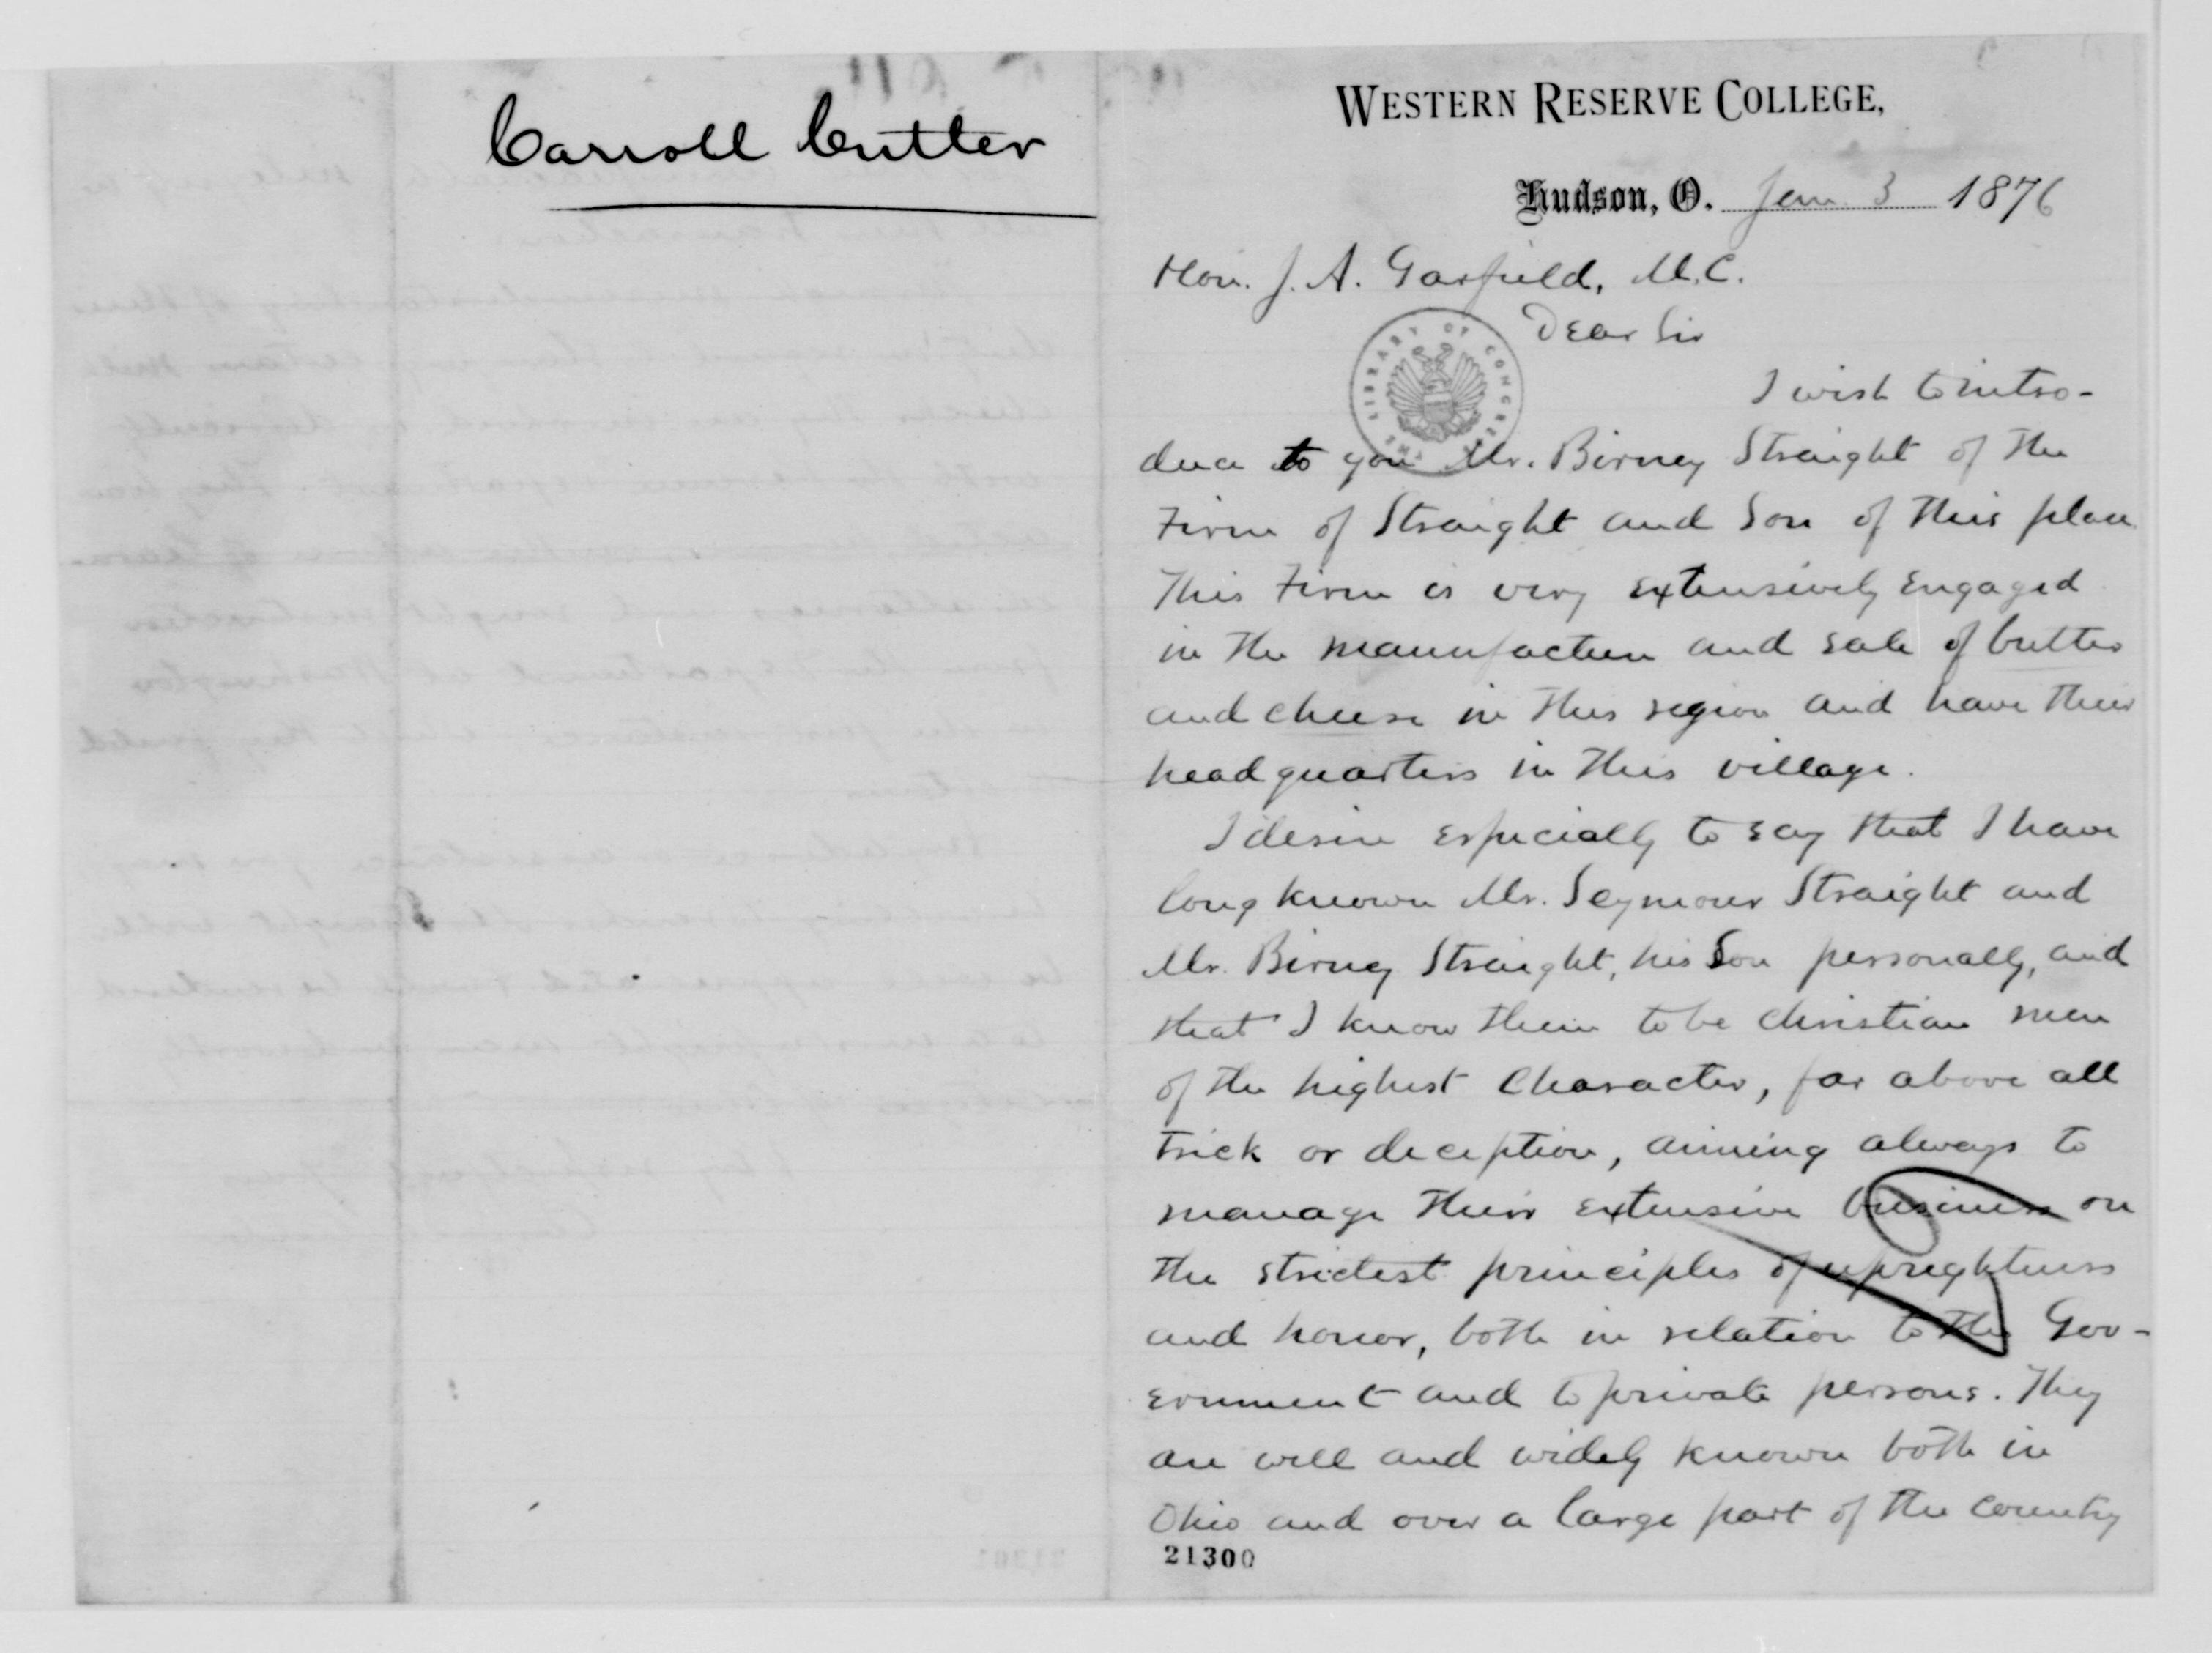 Carroll Cutler
WESTERN RESERVE COLLEGE,
Hudson, O. Jan 3 1876
Hon. J. A. Garfield, M.C.
Dear Sir
THE LIBRARY OF CONGRESS
I wish to intro-
duce to you Mr. Birney Straight of the
Firm of Straight and Son of this place.
This Firm is very extensively engaged
in the manufacture and sale of butter
and cheese in this region and have their
headquarters in this village.
I desire especially to say that I have
long known Mr. Seymour Straight and
Mr. Birney Straight, his Son personally, and
that I know them to be christian men
of the highest Character, far above all
trick or deception, aiming always to
manage their extensive business on
the strictest principles of uprightness
and honor, both in relation to the Gov-
ernment and to private persons. They
are well and widely known both in
Ohio and over a large part of the country
21300